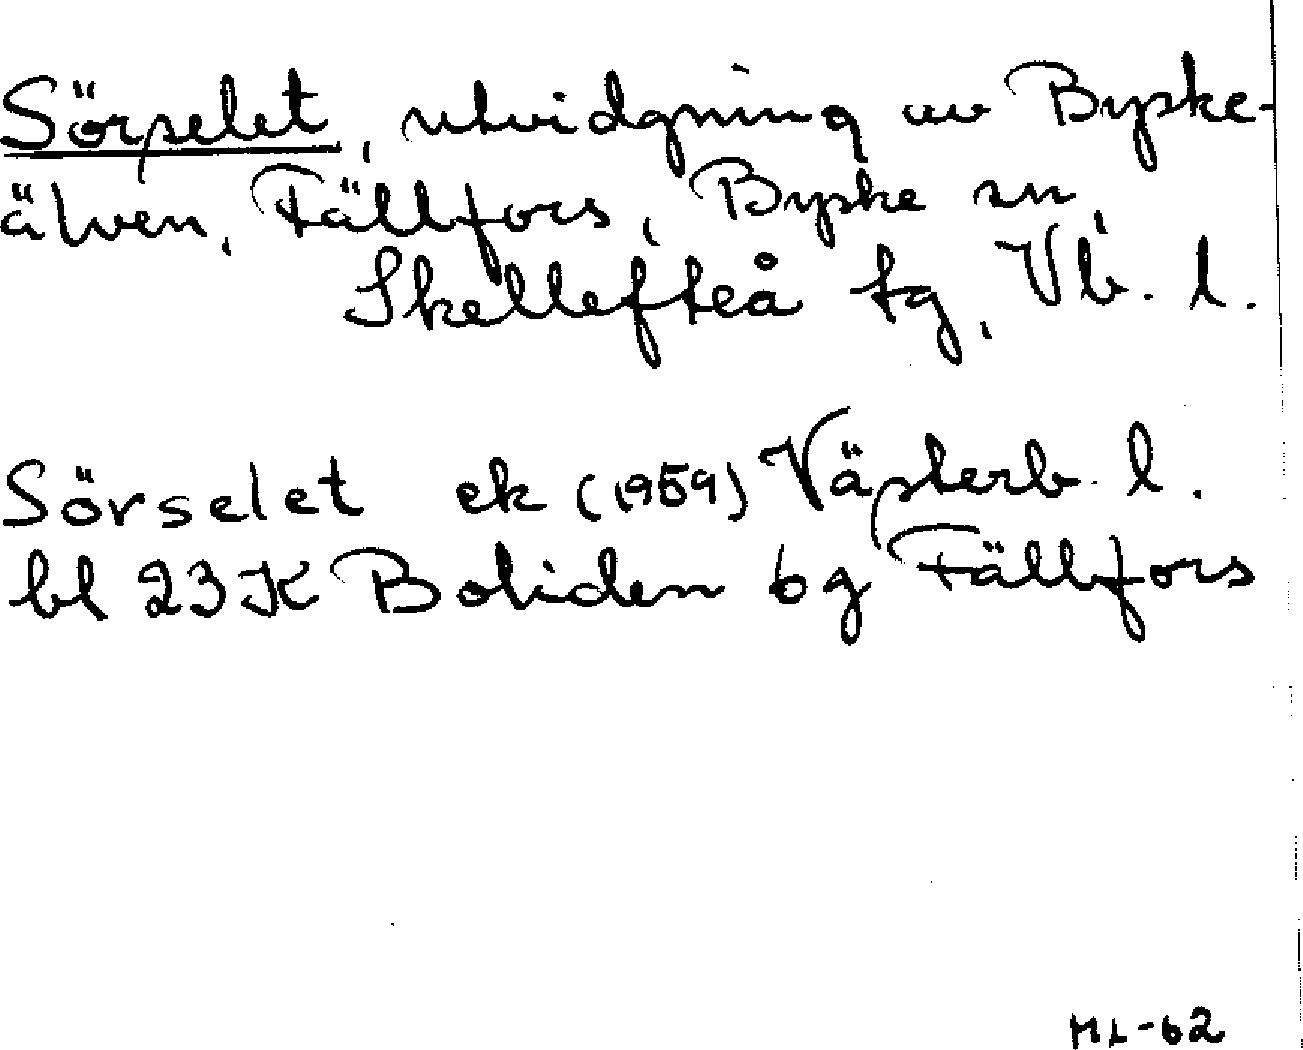 Sörselet, utvidgning av Byske-
älven, Fällfors, Byske sn,
Skellefteå tg, Vb. l.
Sörselet ek (1959) Västerb. l.
bl 23K Boliden 6g Fällfors
ML-62